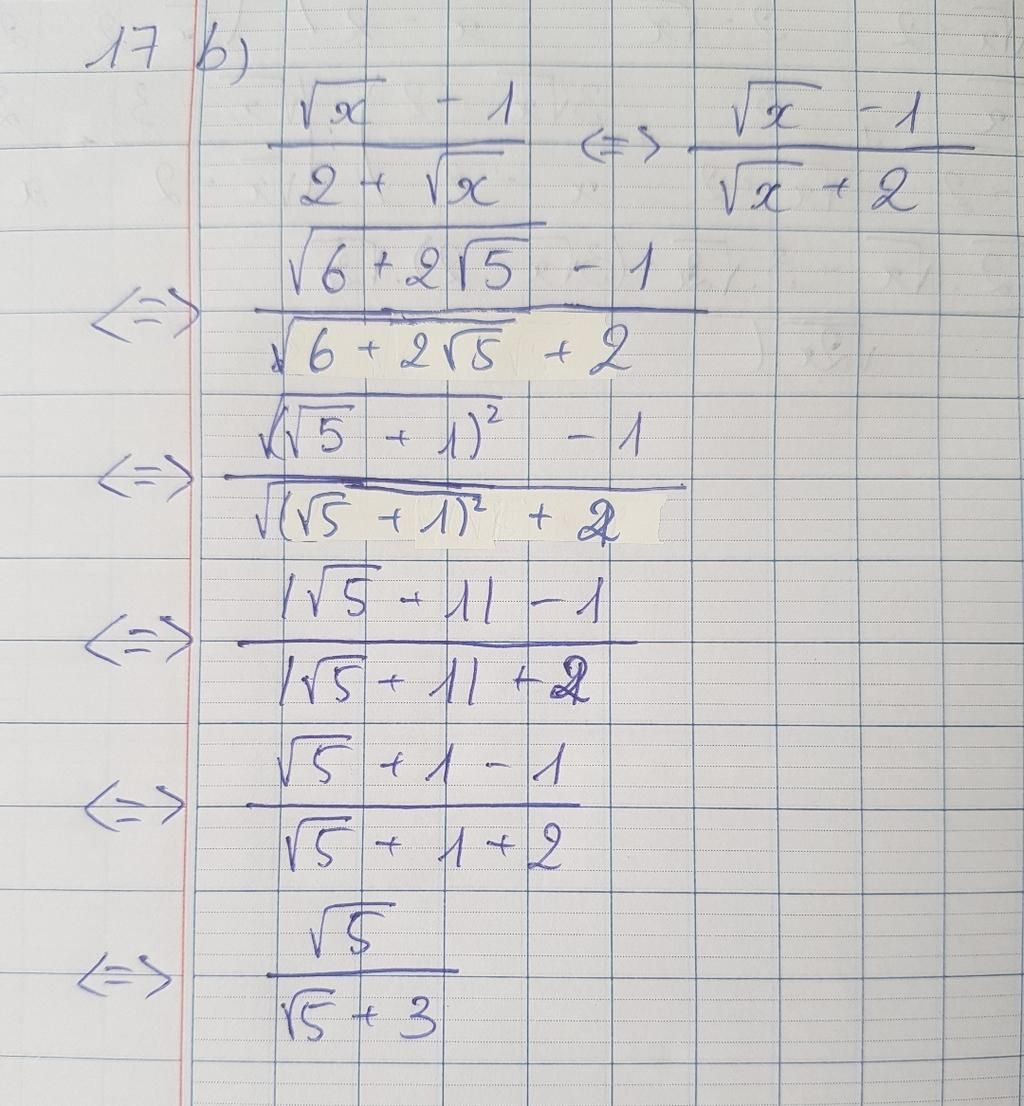 17 b)
(√x - 1)/(2 + √x) <=> (√x - 1)/(√x + 2)
<=> (√(6 + 2√5) - 1)/(√(6 + 2√5) + 2)
<=> (√((√5 + 1)²) - 1)/(√((√5 + 1)²) + 2)
<=> (|√5 + 1| - 1)/(|√5 + 1| + 2)
<=> (√5 + 1 - 1)/(√5 + 1 + 2)
<=> √5/(√5 + 3)